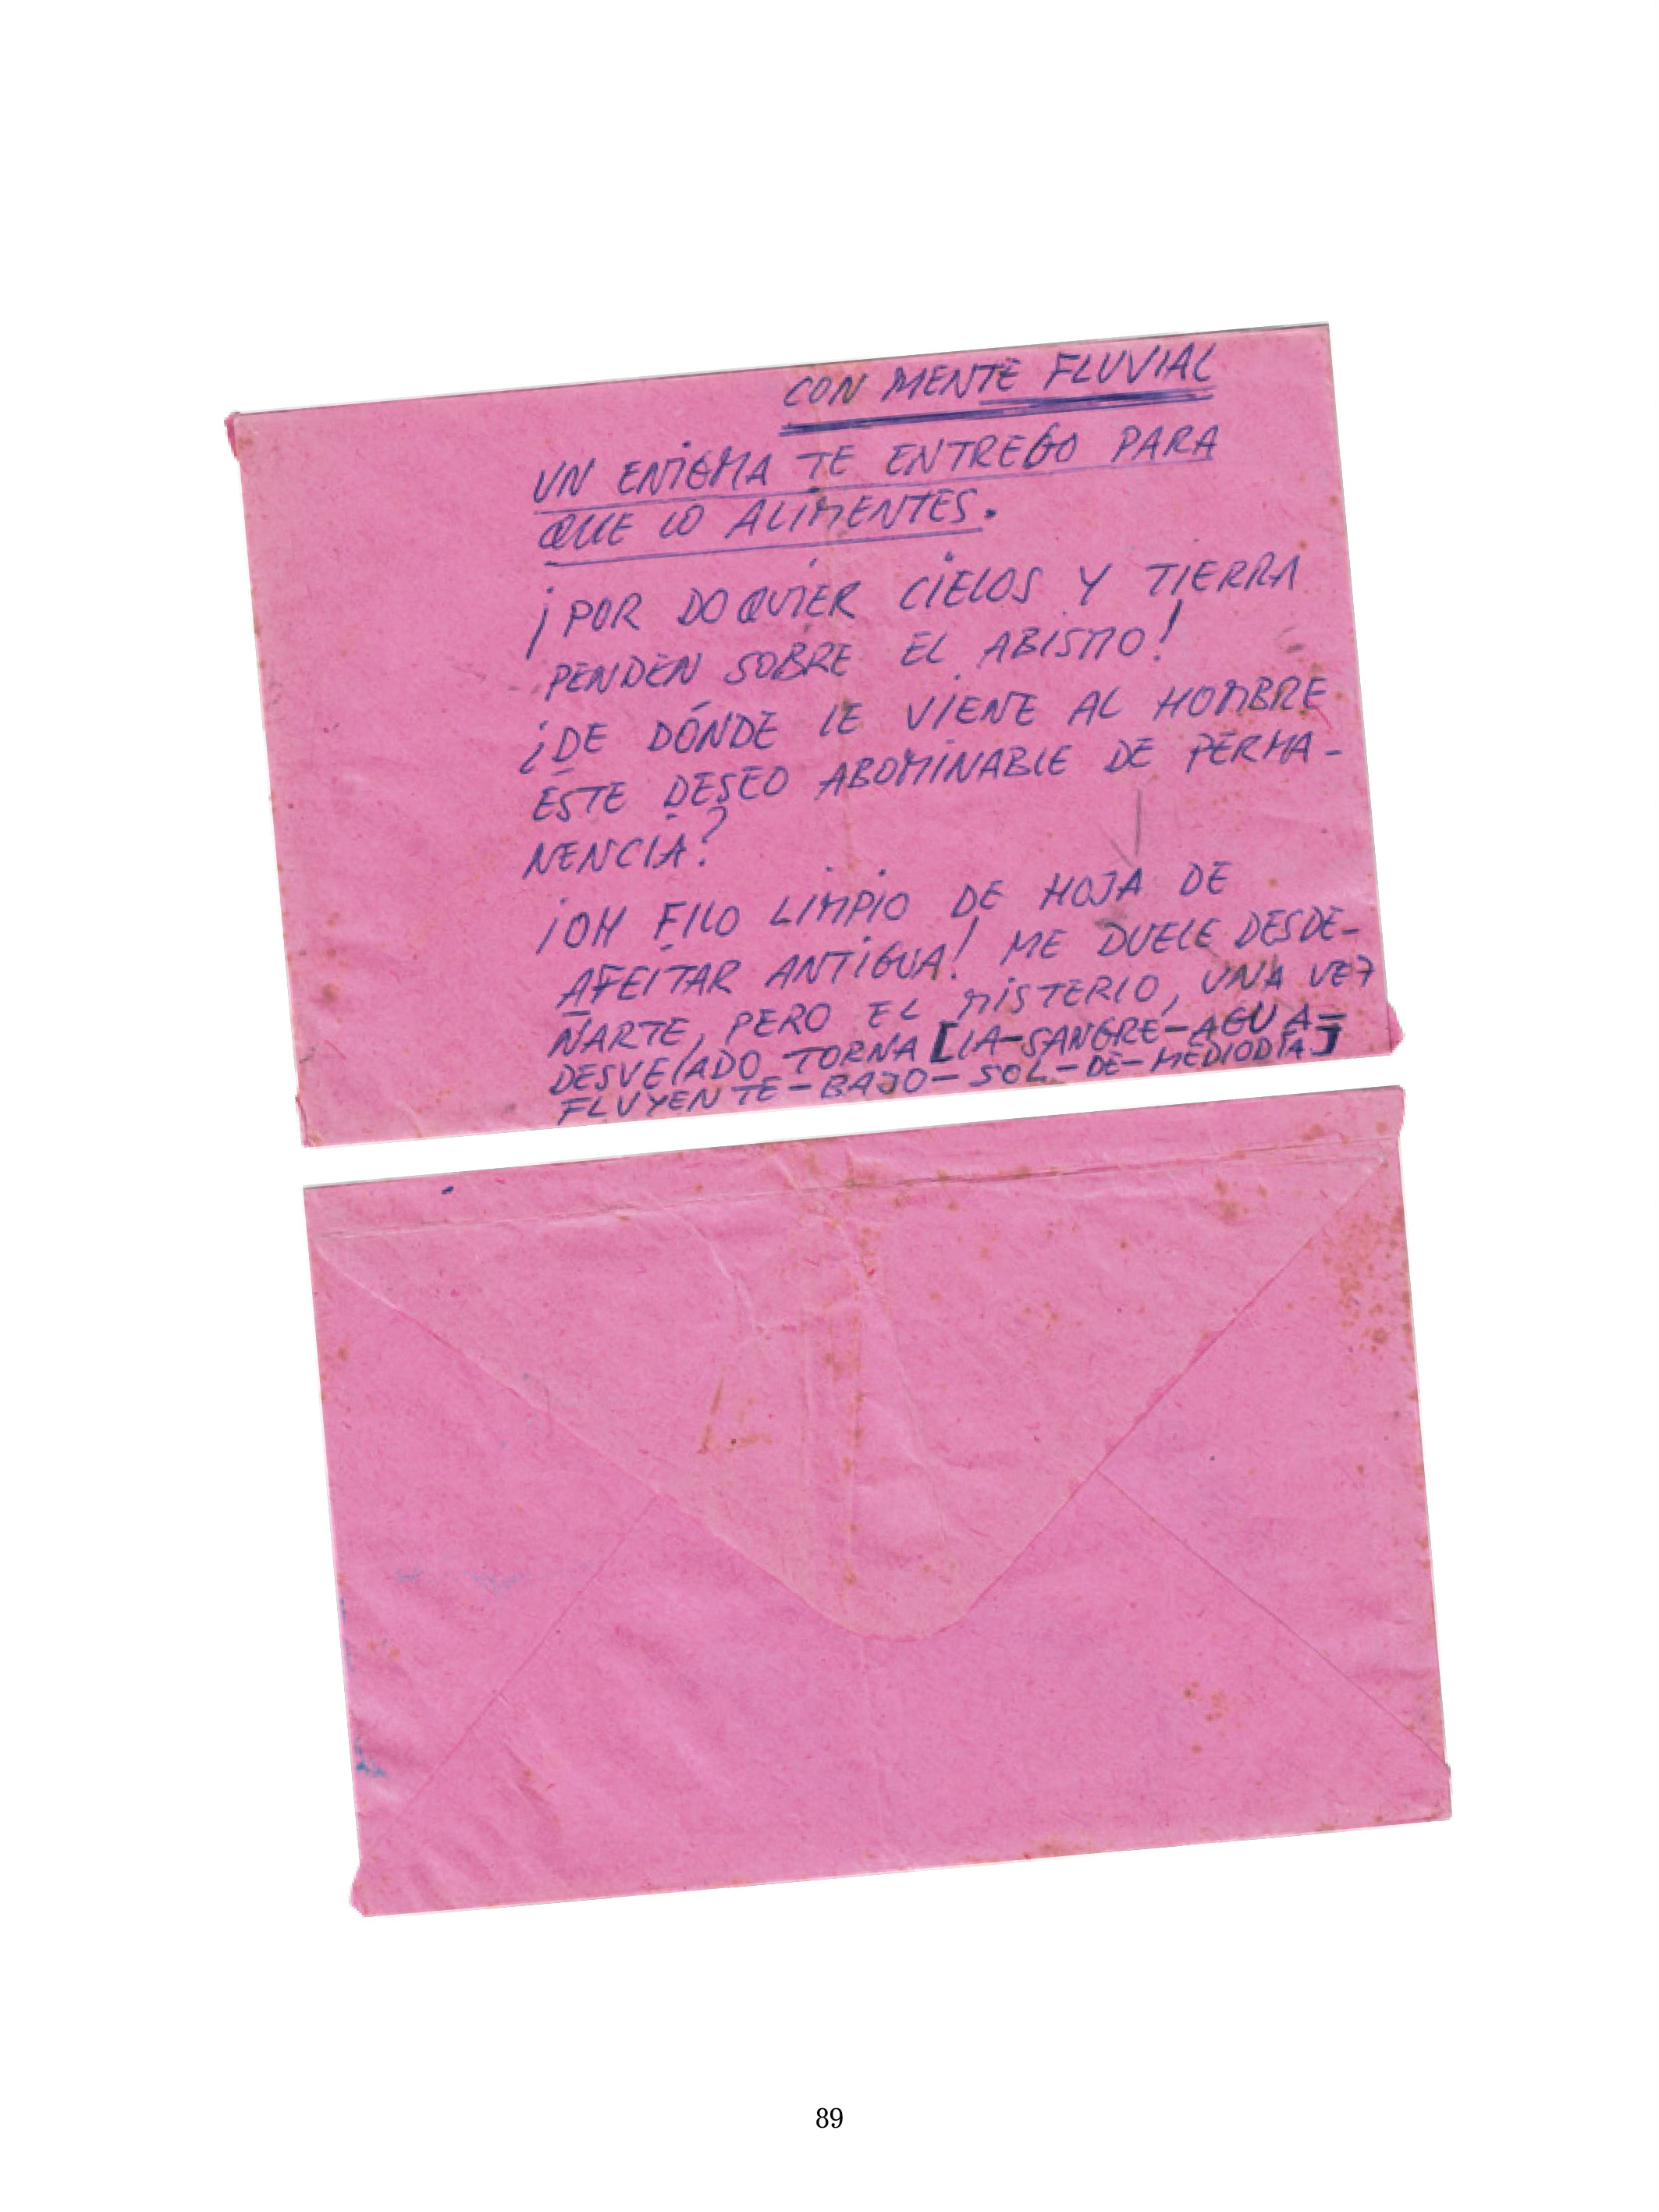 CON MENTE FLUVIAL
UN ENIGMA TE ENTREGO PARA
QUE LO ALIMENTES.
¡POR DOQUIER CIELOS Y TIERRA
PENDEN SOBRE EL ABISMO!
¿DE DÓNDE LE VIENE AL HOMBRE
ESTE DESEO ABOMINABLE DE PERMA-
NENCIA?
¡OH FILO LIMPIO DE HOJA DE
AFEITAR ANTIGUA! ME DUELE DESDE-
ÑARTE, PERO EL MISTERIO, UNA VEZ
DESVELADO TORNA [LA-SANGRE-AGUA-
FLUYENTE-BAJO-SOL-DE-MEDIODÍA]
89